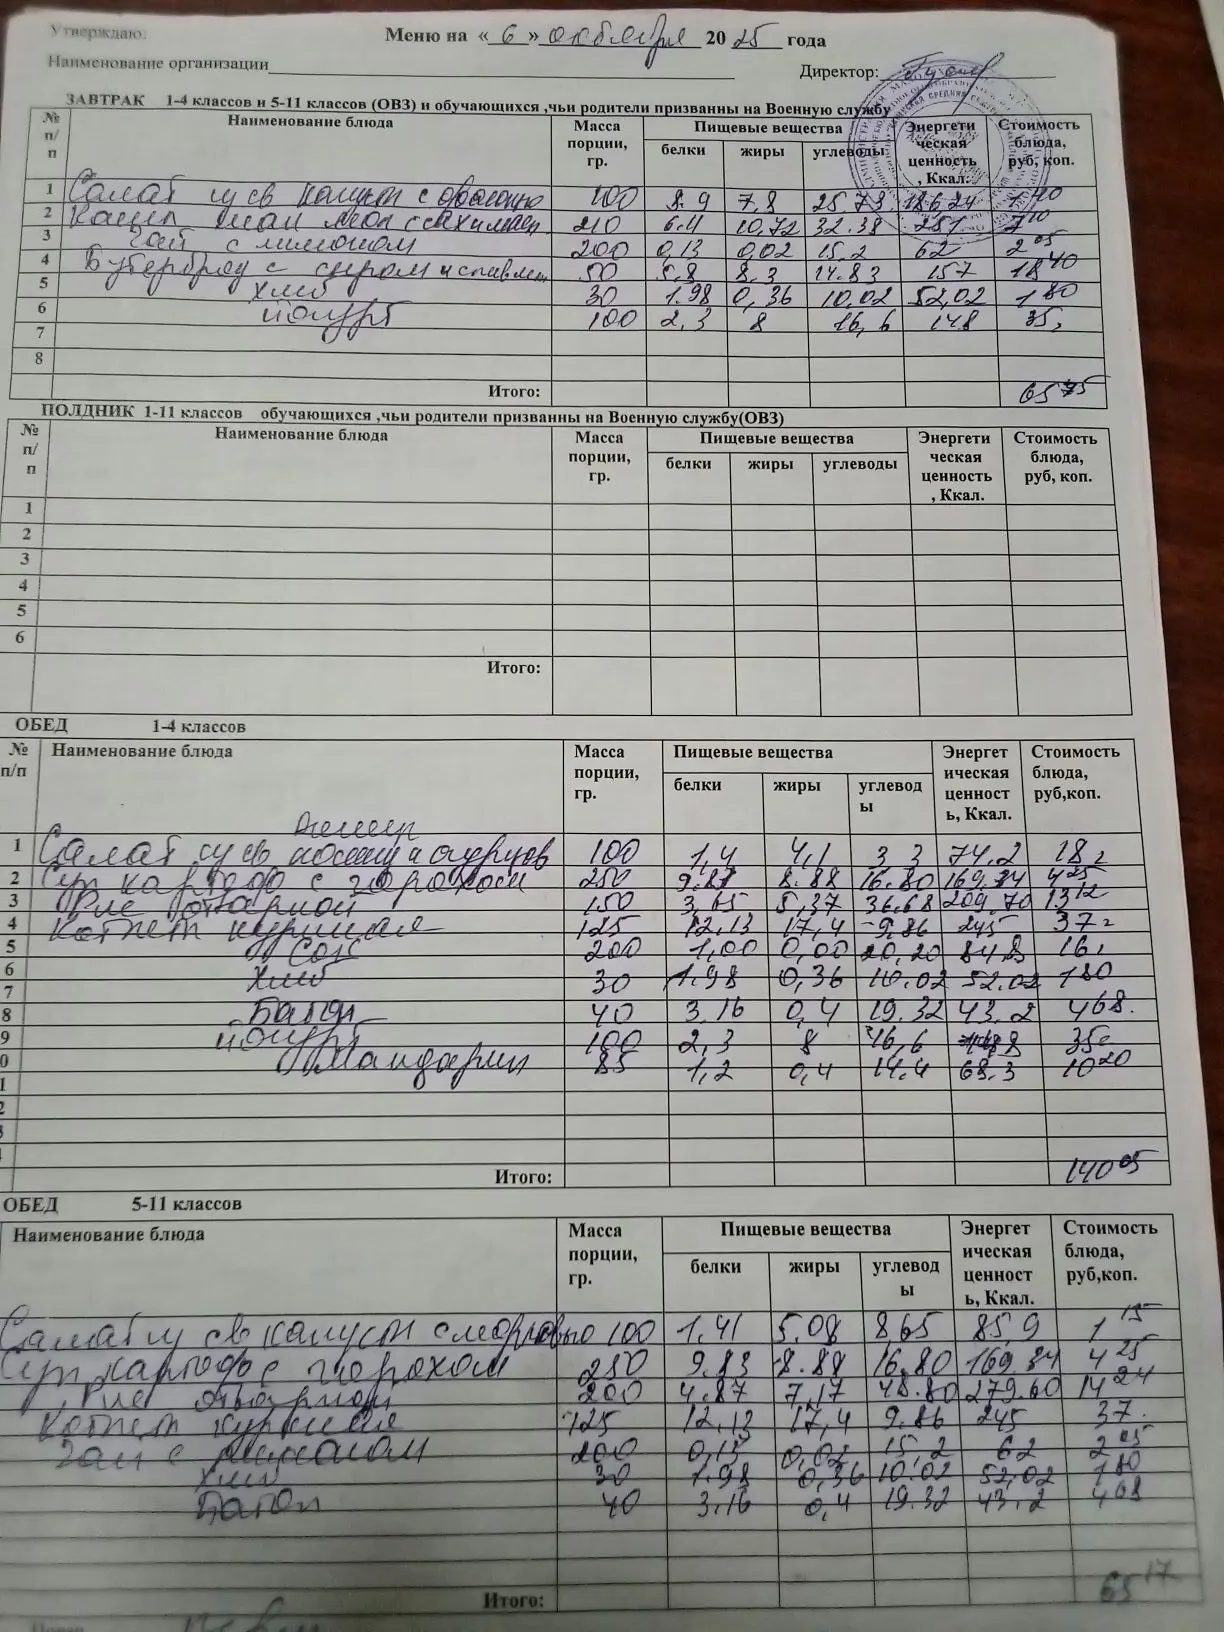 Утверждаю:
Меню на « 6 » октября 20 25 года
Наименование организации Директор:
ЗАВТРАК 1-4 классов и 5-11 классов (ОВЗ) и обучающихся ,чьи родители призванны на Военную службу
№ п/п Наименование блюда Масса порции, гр. Пищевые вещества белки жиры углеводы Энергети ческая ценность , Ккал. Стоимость блюда, руб, коп.
1 Салат из св капуст с 100 8.9 7,8 25,73 186,24
2 Каша 210 6.4 10,72 32.38 251 7 10
3 Чай с лимоном 200 0,13 0,02 15.2 62 2 05
4 Бутерброд с сыром и сливочн 50 5,8 8.3 14.83 157 18 40
5 Хлеб 30 1.98 0,36 10,02 52,02 1 80
6 йогурт 100 2,3 8 16,6 148 35,
7
8
Итого: 65 75
ПОЛДНИК 1-11 классов обучающихся ,чьи родители призванны на Военную службу(ОВЗ)
№ п/п Наименование блюда Масса порции, гр. Пищевые вещества белки жиры углеводы Энергети ческая ценность , Ккал. Стоимость блюда, руб, коп.
1
2
3
4
5
6
Итого:
ОБЕД 1-4 классов
№ п/п Наименование блюда Масса порции, гр. Пищевые вещества белки жиры углевод ы Энергет ическая ценност ь, Ккал. Стоимость блюда, руб,коп.
1 Салат из св помид и огурцов 100 1,4 4,1 3 3 74.2 18
2 Суп картоф с горохом 250 8.88 16.80 169.34 4 25
3 Рис отварной 150 3,65 5,37 36.68 209,70 13 12
4 Котлет куриная 125 12.13 17,4 9.86 245 37
5 Сок 200 1,00 0,00 20,20 84.8 16
6 Хлеб 30 1.98 0,36 10.02 52.02 1 80
7
8 Батон 40 3.16 0,4 19.32 43.2 4 68.
9 йогурт 100 2,3 8 16,6 35
0 Мандарин 85 1,2 0,4 14.4 68.3 10 20
1
2
3
Итого: 140 05
ОБЕД 5-11 классов
Наименование блюда Масса порции, гр. Пищевые вещества белки жиры углевод ы Энергет ическая ценност ь, Ккал. Стоимость блюда, руб,коп.
Салат из св капуст с морковью 100 1,41 5.08 8 65 85,9 1 15
Суп картоф с горохом 250 9.83 8.88 16,80 169.34 4 25
Рис отварной 200 4.87 7,17 48.80 279.60 14 24
Котлет куриная 125 12,13 17,4 9.86 245 37.
Чай с лимоном 200 0,13 0,02 15,2 62 2 05
Хлеб 30 1.98 0,36 10.02 52,02 1 80
Батон 40 3.16 0,4 19.32 43.2 4 68
Итого: 65 17